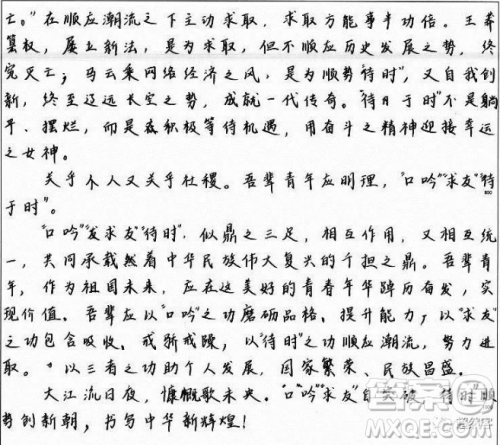 亡。”在顺应潮流之下主动求取，求取方能事半功倍。王莽
篡权，屡立新法，是为求取，但不顺应历史发展之势，终
究灭亡；马云乘网络经济之风，是为顺势“待时”，又自我创
新，终至辽远长空之势，成就一代传奇。“待日于时”不是躺
平、摆烂，而是在积极等待机遇，用奋斗之精神迎接幸运
之女神。
关乎个人又关乎社稷。吾辈青年应明理，“口吟”“求友”“待
于时”。
“口吟”“求友”“待时”，似鼎之三足，相互作用，又相互统
一，共同承载燃着中华民族伟大复兴的千担之鼎。吾辈青
年，作为祖国未来，应在这美好的青春年华踔厉奋发，实
现价值。吾辈应以“口吟”之功磨砺品格、提升能力，以“求友”
之功包含吸收、戒骄戒躁，以“待时”之功顺应潮流，努力进
取。以三者之功助个人发展，国家繁荣、民族昌盛。
大江流日夜，慷慨歌未央。“口吟”“求友”自突破，待时顺
势创新朝，书写中华新辉煌！